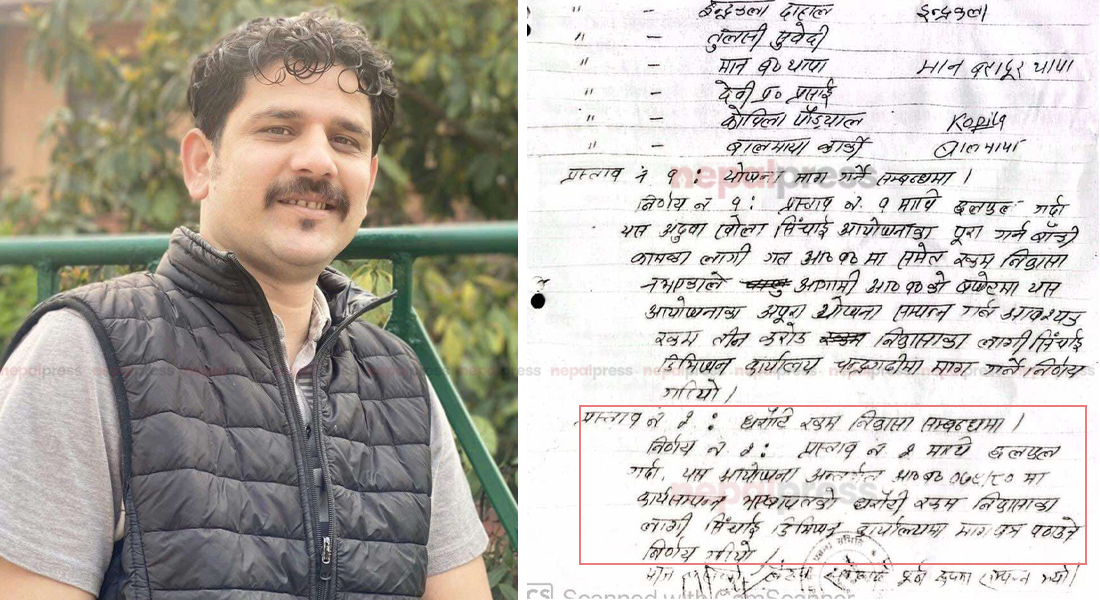 " - इन्द्रकला दाहाल इन्द्रकला
" - तुलसी सुवेदी
" - मान ब० थापा मान बहादुर थापा
" - देवी प्र० प्रसाई
" - कोपिला पौड्याल Kopila
" - बालमाया कार्की बालमाया
प्रस्ताव नं १ : योजना माग गर्ने सम्बन्धमा ।
निर्णय नं १ : प्रस्ताव नं. १ माथि छलफल गर्दा
यस अदुवा खोला सिंचाई आयोजनाका पूरा गर्न बाँकी
कामका लागी गत आ०ब० मा समेत रकम निकासा
नभएकाले आगामी आ०ब०को बजेटमा यस
आयोजनाका अपूरा योजना सम्पन्न गर्न आवश्यक
रकम तीन करोड निकासाका लागी सिंचाई
डिभिजन कार्यालय चन्द्रगढीमा माग गर्ने निर्णय
गरियो ।
प्रस्ताव नं २ : धरौटि रकम निकासा सम्बन्धमा ।
निर्णय नं. २ : प्रस्ताव नं २ माथि छलफल
गर्दा, यस आयोजना अन्तर्गत आ०ब० ०७९/८० मा
कार्यसम्पन्न भएको धरौटी रकम निकासाका
लागी, सिंचाई डिभिजन कार्यालयमा माग पत्र पठाउने
निर्णय गरियो ।
nepalpress
nepalpress
nepalpress nepalpress nepalpress nepalpress nepalpress nepalpress nepalpress nepalpress
CS Scanned with CamScanner